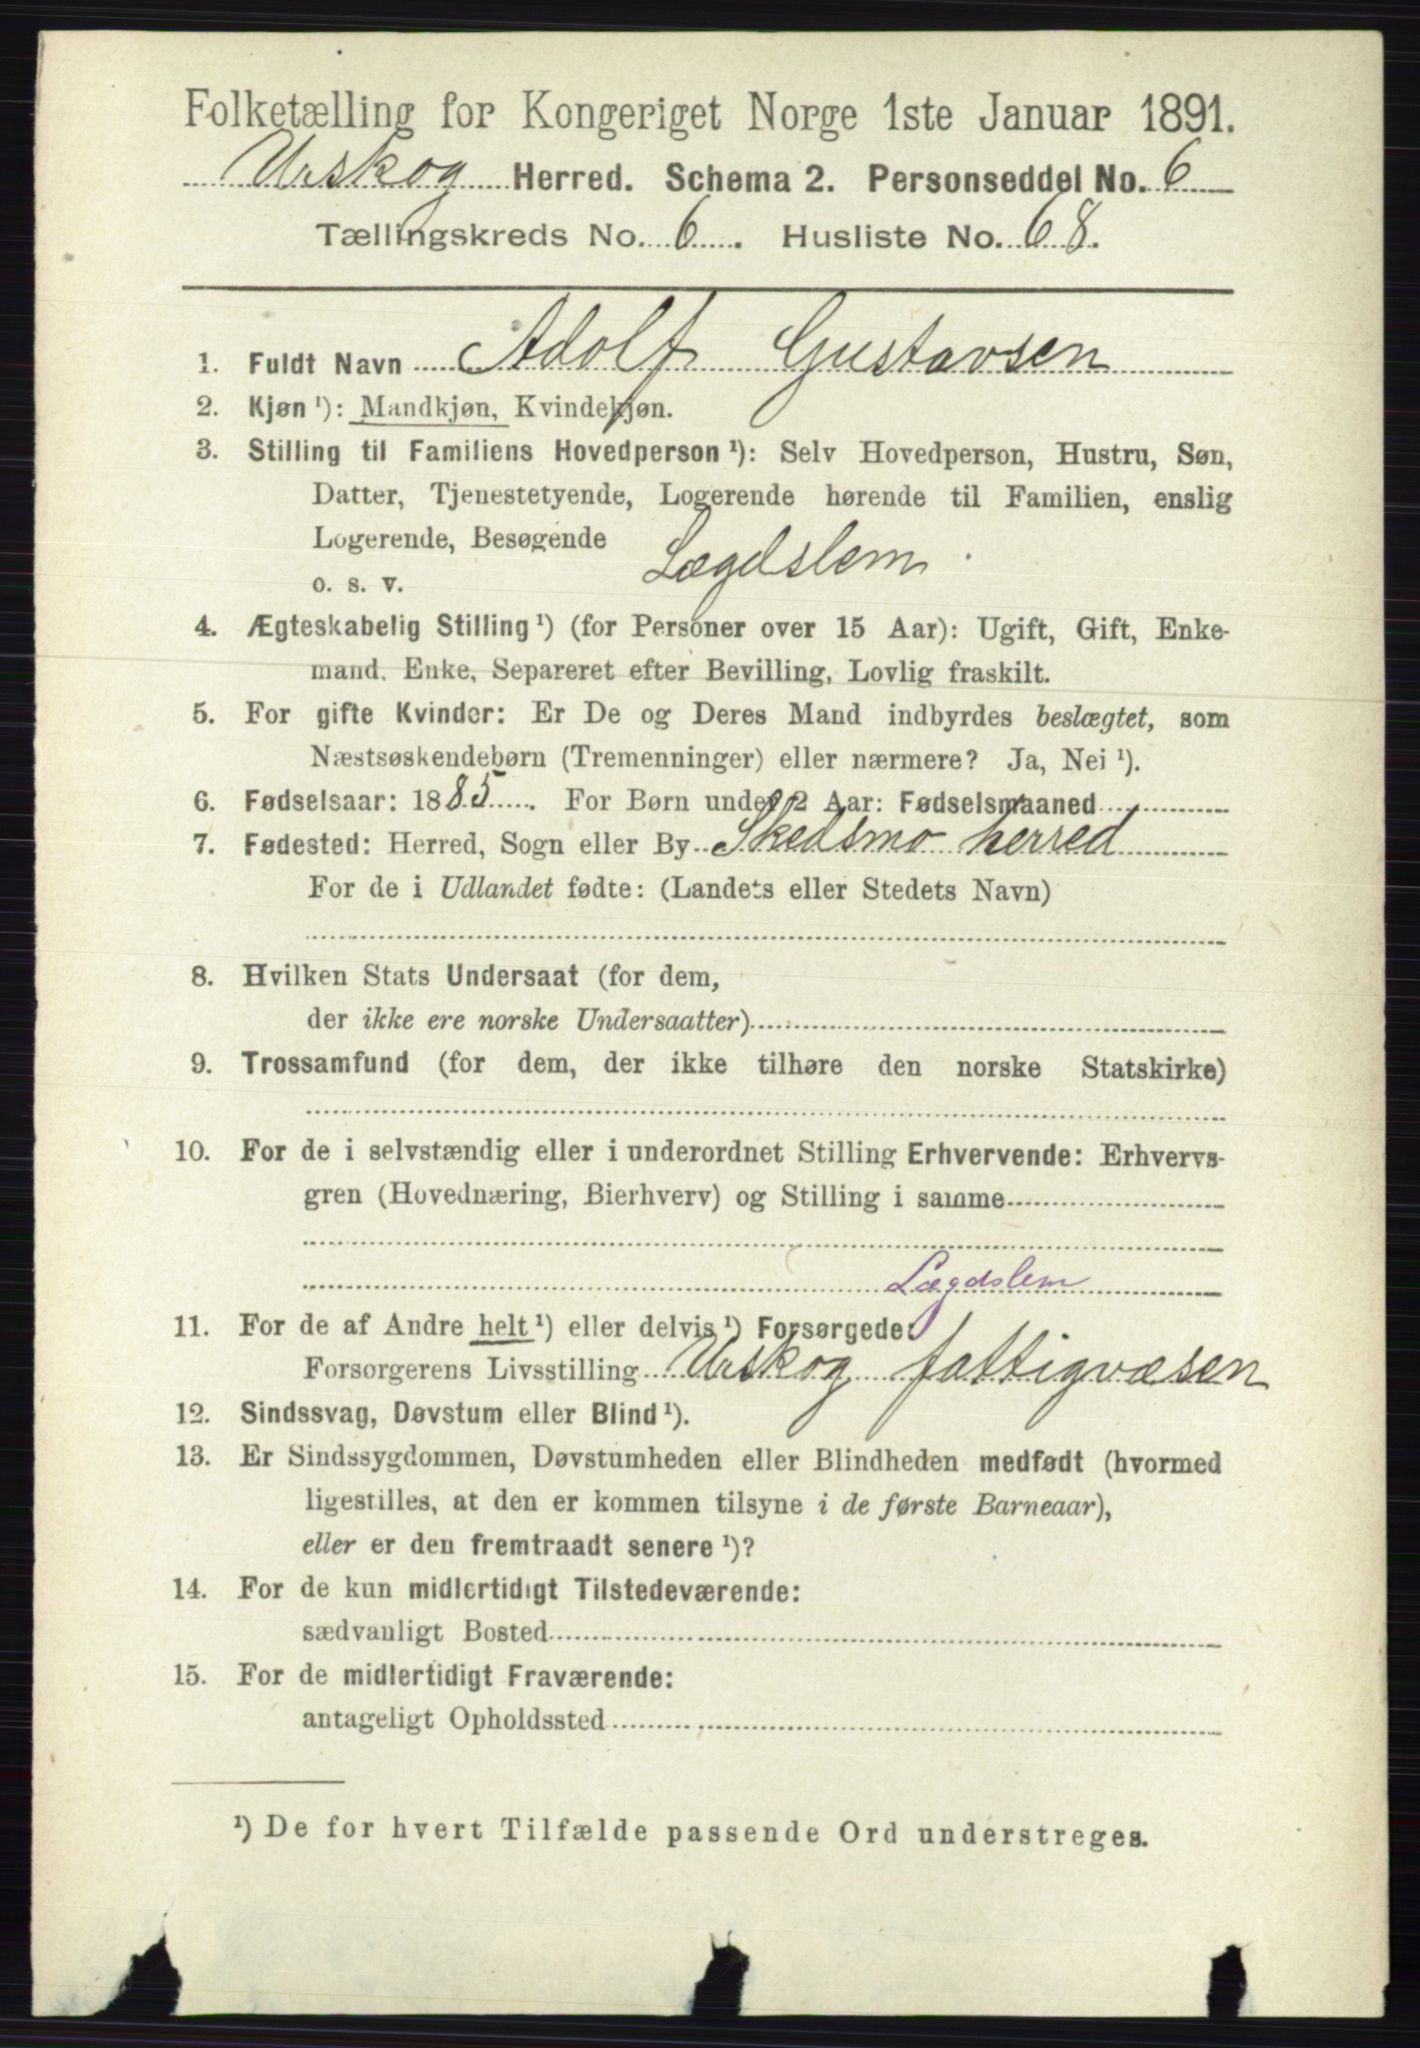 Folketælling for Kongeriget Norge 1ste Januar 1891.
Urskog Herred. Schema 2. Personseddel No. 6
Tællingskreds No. 6. Husliste No. 68.
1. Fuldt Navn Adolf Gustavsen
2. Kjøn ¹): Mandkjøn, Kvindekjøn.
3. Stilling til Familiens Hovedperson ¹): Selv Hovedperson, Hustru, Søn,
Datter, Tjenestetyende, Logerende hørende til Familien, enslig
Logerende, Besøgende
o. s. v. Lægdslem
4. Ægteskabelig Stilling ¹) (for Personer over 15 Aar): Ugift, Gift, Enke-
mand, Enke, Separeret efter Bevilling, Lovlig fraskilt.
5. For gifte Kvinder: Er De og Deres Mand indbyrdes beslægtet, som
Næstsøskendebørn (Tremenninger) eller nærmere? Ja, Nei ¹).
6. Fødselsaar: 1885. For Børn under 2 Aar: Fødselsmaaned
7. Fødested: Herred, Sogn eller By Skedsmo herred
For de i Udlandet fødte: (Landets eller Stedets Navn)
8. Hvilken Stats Undersaat (for dem,
der ikke ere norske Undersaatter)
9. Trossamfund (for dem, der ikke tilhøre den norske Statskirke)
10. For de i selvstændig eller i underordnet Stilling Erhvervende: Erhvervs-
gren (Hovednæring, Bierhverv) og Stilling i samme
Lægdslem
11. For de af Andre helt ¹) eller delvis ¹) Forsørgede:
Forsørgerens Livsstilling Urskog fattigvæsen
12. Sindssvag, Døvstum eller Blind ¹).
13. Er Sindssygdommen, Døvstumheden eller Blindheden medfødt (hvormed
ligestilles, at den er kommen tilsyne i de første Barneaar),
eller er den fremtraadt senere ¹)?
14. For de kun midlertidigt Tilstedeværende:
sædvanligt Bosted
15. For de midlertidigt Fraværende:
antageligt Opholdssted
¹) De for hvert Tilfælde passende Ord understreges.